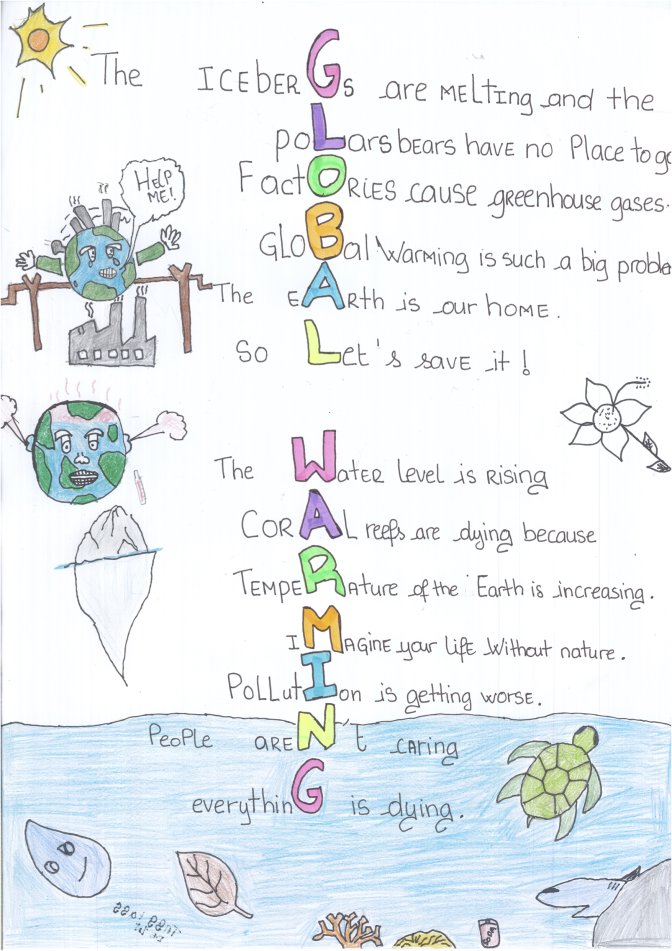 The ICEberGs are MELtIng and the
poLarsbears have no Place to go
FactORIES cause greenhouse gases.
HELP
ME!
GLOBal Warming is such a big proble
The EARth is our HOME.
So Let's save it!
The Water Level is Rising
CORAL reefs are dying because
TEMPERAture of the Earth is increasing.
IMAGINE your LIfe without nature.
PoLLutIon is getting worse.
PeoPLE AREN't CARing
everythinG is dying.